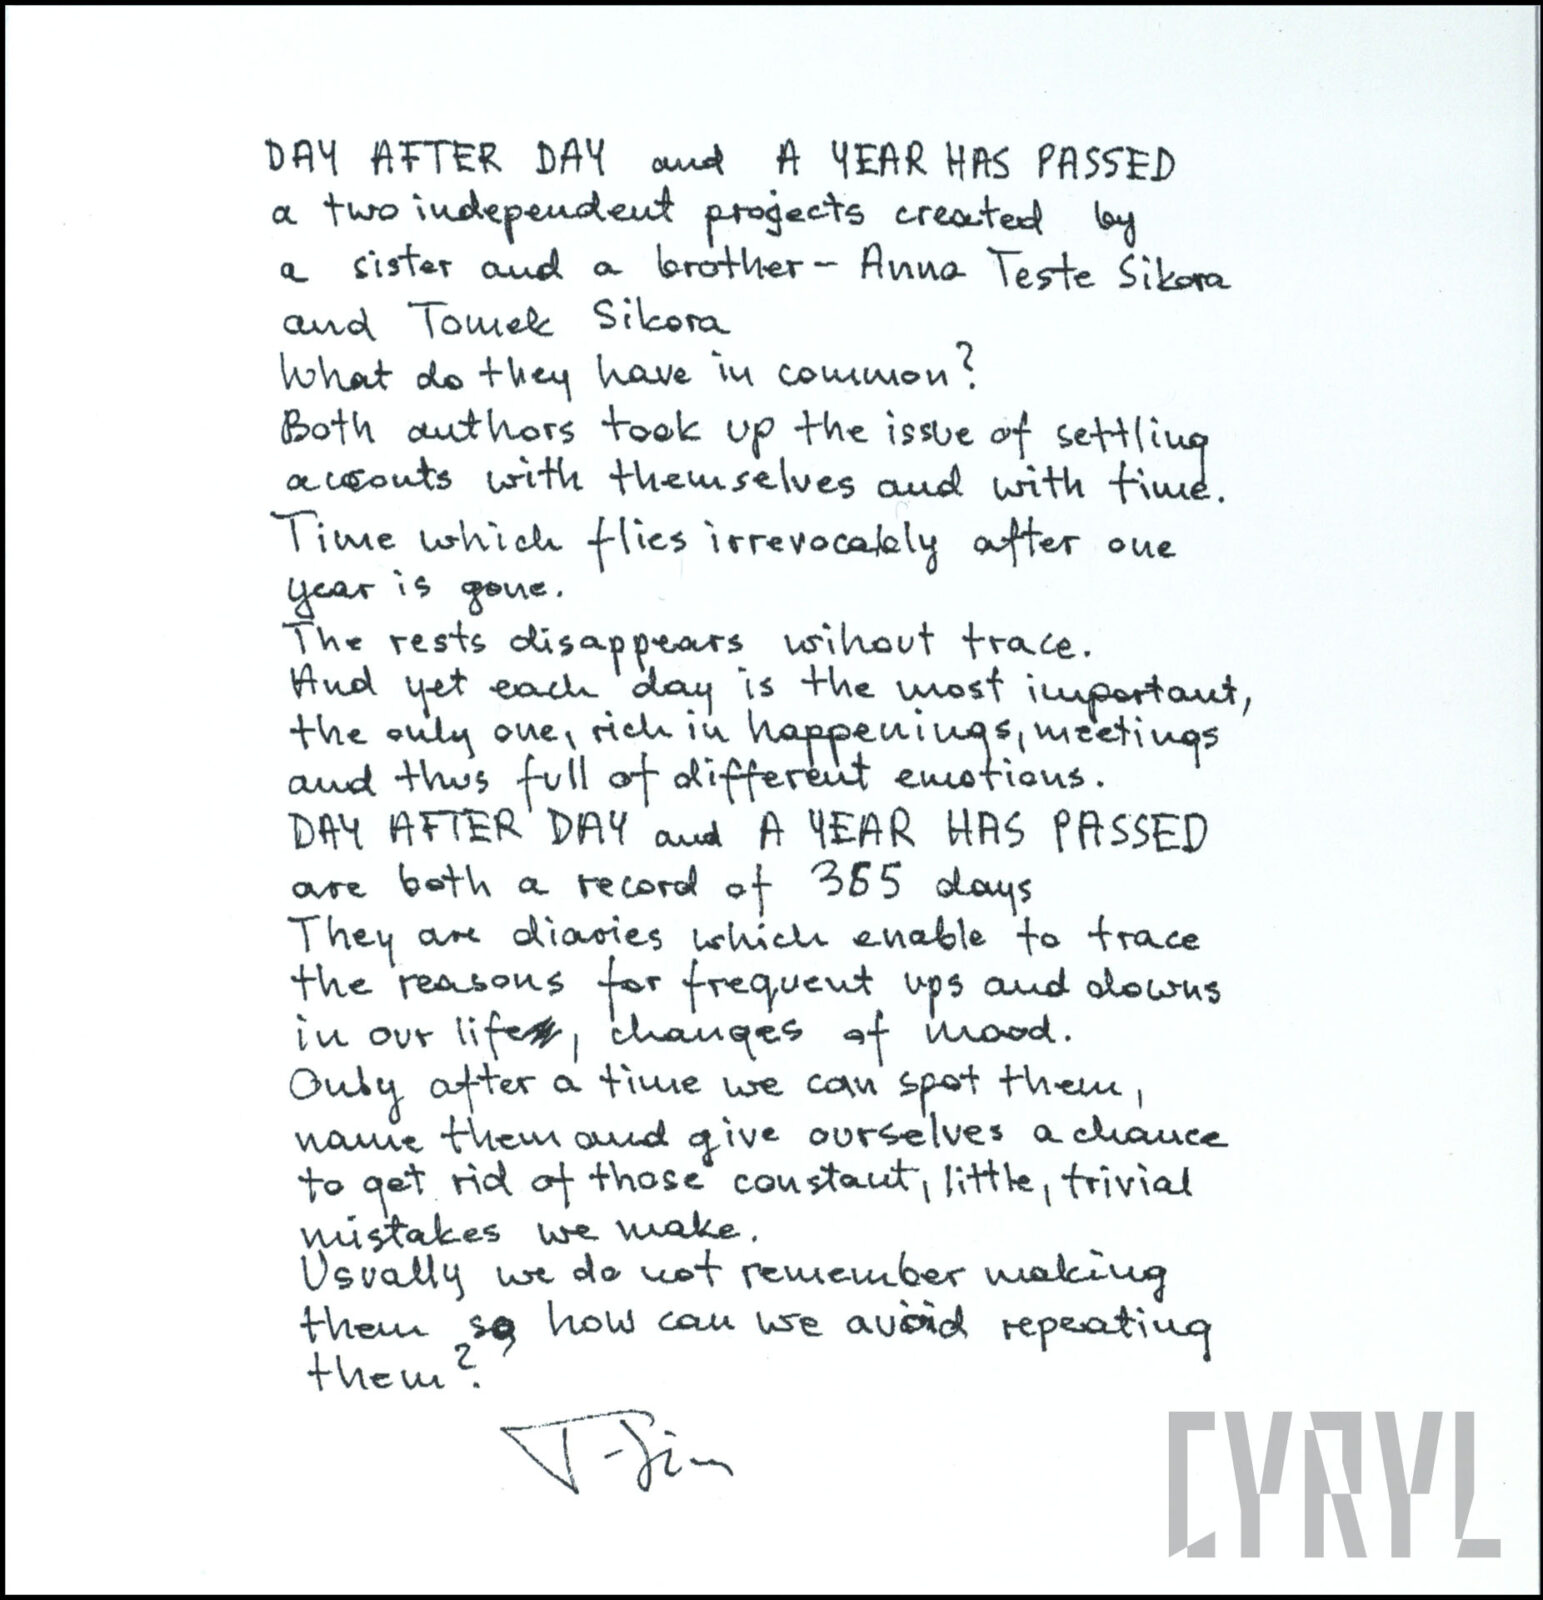 DAY AFTER DAY and A YEAR HAS PASSED
a two independent projects created by
a sister and a brother – Anna Teste Sikora
and Tomek Sikora
What do they have in common?
Both authors took up the issue of settling
accouts with themselves and with time.
Time which flies irrevocably after one
year is gone.
The rests disappears wihout trace.
And yet each day is the most important,
the only one, rich in happenings, meetings
and thus full of different emotions.
DAY AFTER DAY and A YEAR HAS PASSED
are both a record of 365 days
They are diaries which enable to trace
the reasons for frequent ups and downs
in our life, changes of mood.
Only after a time we can spot them,
name them and give ourselves a chance
to get rid of those constant, little, trivial
mistakes we make.
Usually we do not remember making
them so, how can we avoid repeating
them?
CYRYL